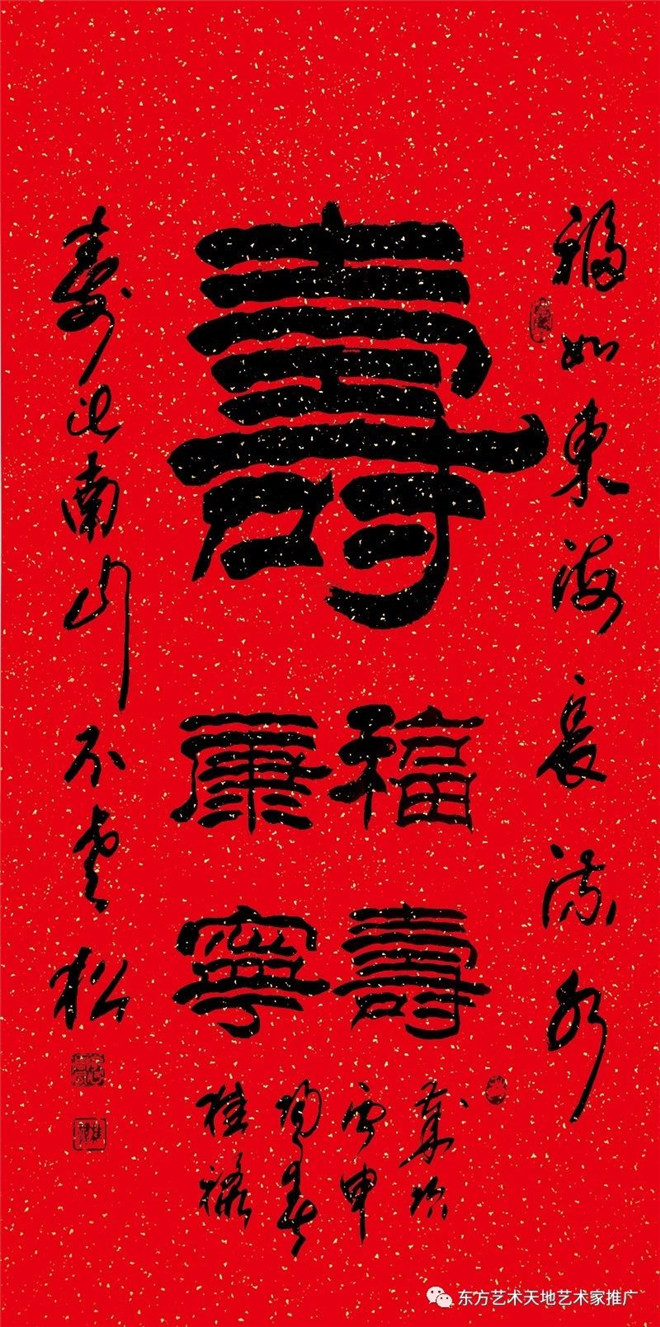 福如東海長流水
壽
福壽
康寧
壽比南山不老松
歲次
丙申
春
桂禄
东方艺术天地艺术家推广